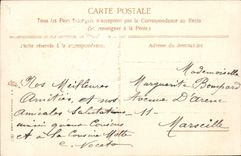 CARTE POSTALE
Tous les Pays Étrangers n'acceptent pas la Correspondance au Recto
(Se renseigner à la Poste)
Partie réservée à la correspondance. Adresse du destinataire
Mademoiselle
Nos Meilleures Marguerite Bompard
Amitiés et nos Avenue D'Arenc
Amicales Salutations -11-
ainsi quaux Cousins Marseille
et à la Cousine